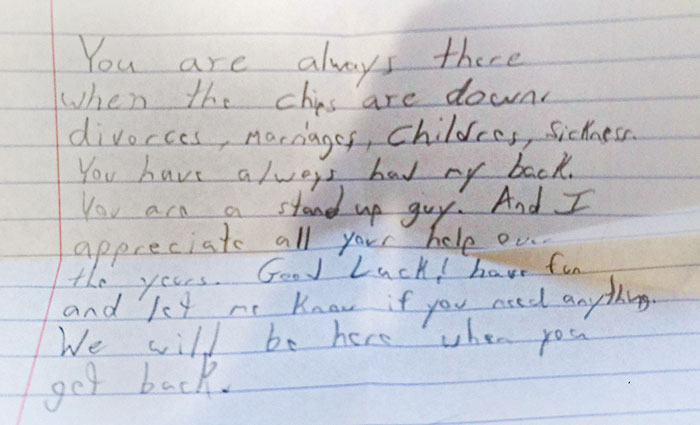 You are always there
when the chips are down
divorces, marriages, childrens, sickness.
You have always had my back.
You are a stand up guy. And I
appreciate all your help over
the years. Good Luck! have fun
and let me know if you need anything.
We will be here when you
get back.